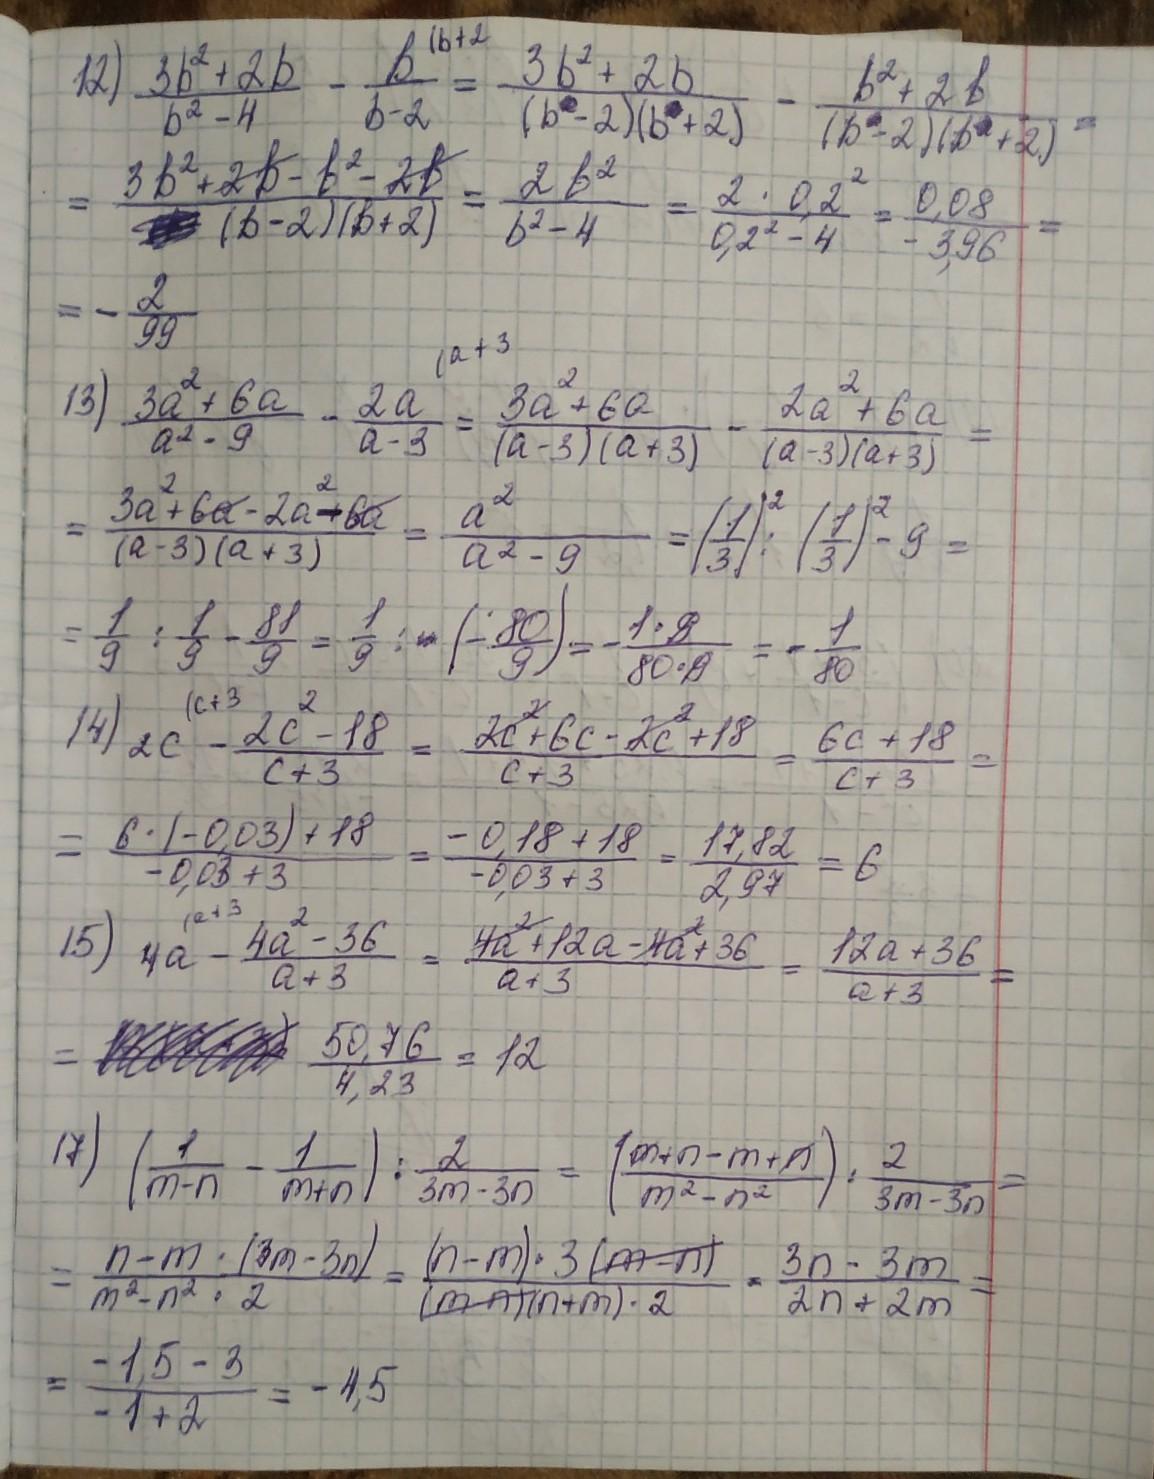 12) (3b²+2b)/(b²-4) - b/(b-2) (b+2 = (3b²+2b)/((b-2)(b+2)) - (b²+2b)/((b-2)(b+2)) =
= (3b²+2b-b²-2b)/((b-2)(b+2)) = 2b²/(b²-4) = (2·0,2²)/(0,2²-4) = 0,08/(-3,96) =
= -2/99
13) (3a²+6a)/(a²-9) - 2a/(a-3) (a+3 = (3a²+6a)/((a-3)(a+3)) - (2a²+6a)/((a-3)(a+3)) =
= (3a²+6a-2a²-6a)/((a-3)(a+3)) = a²/(a²-9) = (1/3)² : (1/3)² - 9 =
= 1/9 : 1/9 - 81/9 = 1/9 : (-80/9) = -(1·9)/(80·9) = -1/80
14) 2c (c+3 - (2c²-18)/(c+3) = (2c²+6c-2c²+18)/(c+3) = (6c+18)/(c+3) =
= (6·(-0,03)+18)/(-0,03+3) = (-0,18+18)/(-0,03+3) = 17,82/2,97 = 6
15) 4a (a+3 - (4a²-36)/(a+3) = (4a²+12a-4a²+36)/(a+3) = (12a+36)/(a+3) =
= 50,76/4,23 = 12
17) (1/(m-n) - 1/(m+n)) : 2/(3m-3n) = ((m+n-m+n)/(m²-n²)) : 2/(3m-3n) =
= (n-m·(3m-3n))/(m²-n²·2) = ((n-m)·3(m-n))/((m-n)(n+m)·2) = (3n-3m)/(2n+2m) =
= (-1,5-3)/(-1+2) = -4,5